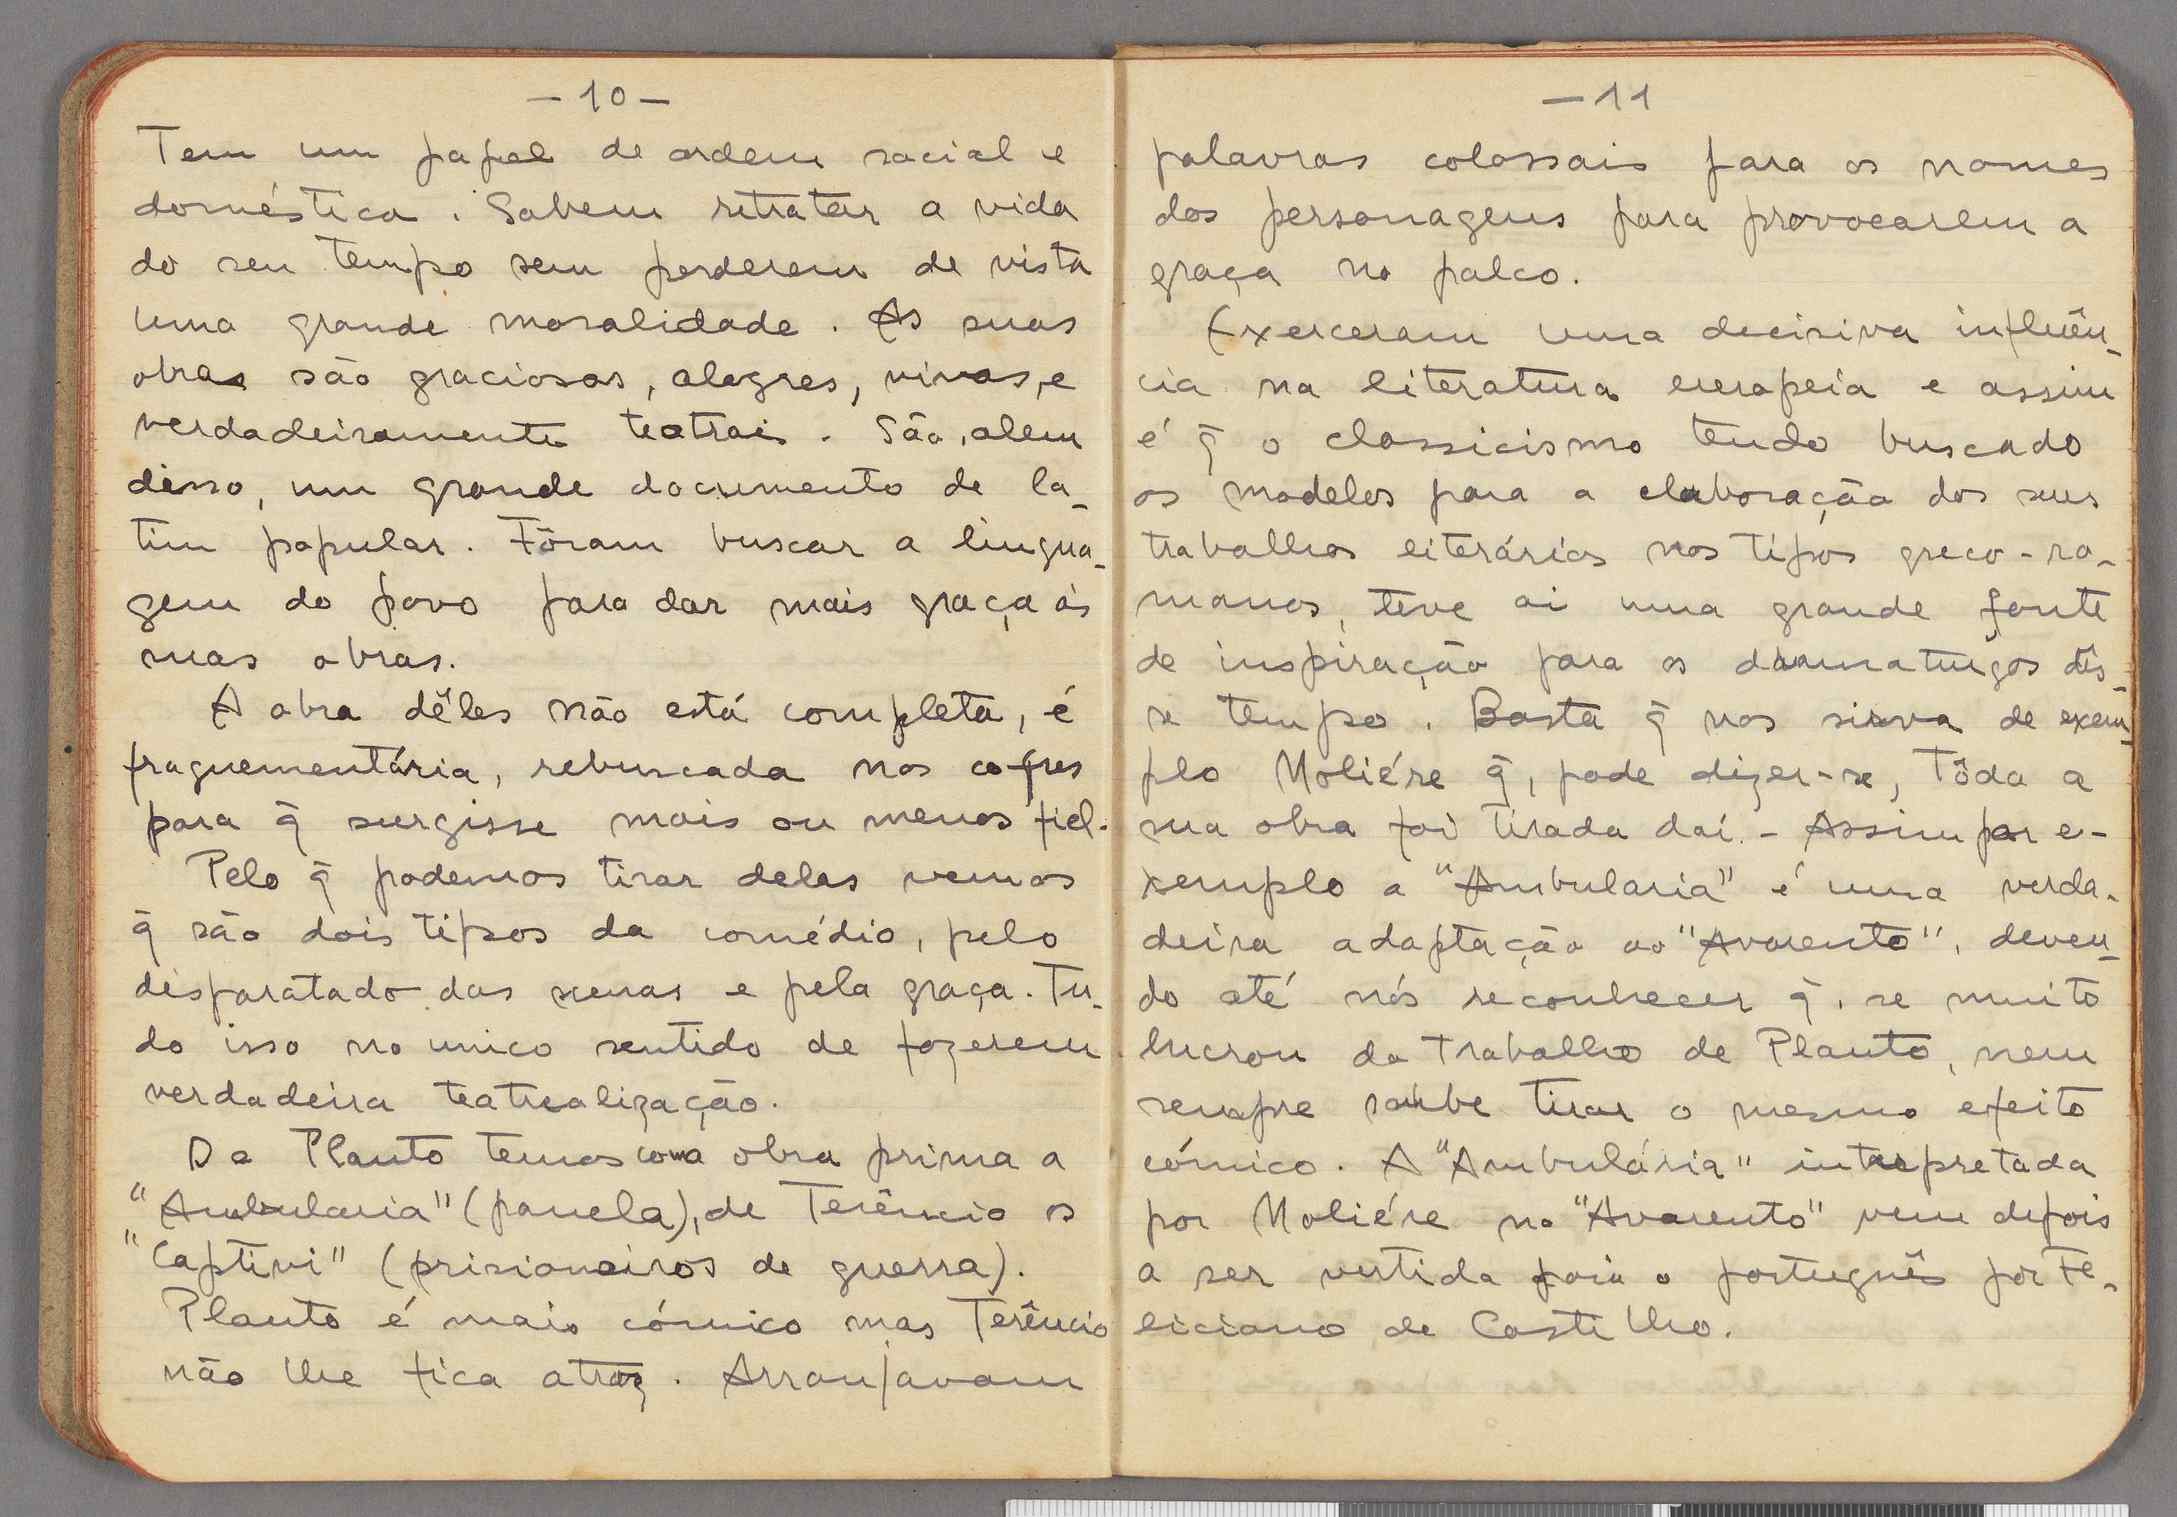 - 10 -
Tem um papel de ordem social e
doméstica. Sabem retratar a vida
do seu tempo sem perderem de vista
uma grande moralidade. As suas
obras são graciosas, alegres, vivas, e
verdadeiramente teatrais. São, alem
disso, um grande documento de la-
tim popular. Fôram buscar a lingua-
gem do povo para dar mais graça às
suas obras.
A obra dêles não está completa, é
fraguementária, rebuscada nos cofres
para q̃ surgisse mais ou menos fiel.
Pelo q̃ podemos tirar deles vemos
q̃ são dois tipos da comédio, pelo
disparatado das scenas e pela graça. Tu-
do isso no unico sentido de fazerem
verdadeira teatrealização.
De Plauto temos como obra prima a
"Ambularia" (panela), de Terêncio os
"Captivi" (prisioneiros de guerra).
Plauto é mais cómico mas Terêncio
não lhe fica atraz. Arranjavam
- 11
palavras colossais para os nomes
dos personagens para provocarem a
graça no palco.
Exerceram uma decisiva influên-
cia na literatura europeia e assim
é q̃ o classicismo tendo buscado
os modelos para a elaboração dos seus
trabalhos literários nos tipos greco-ro-
manos, teve aí uma grande fonte
de inspiração para os dramaturgos dês-
se tempo. Basta q̃ nos sirva de exem-
plo Moliére q̃, pode dizer-se, tôda a
sua obra foi tirada daí. - Assim por e-
xemplo a "Ambularia" é uma verda-
deira adaptação ao "Avarento", deven-
do até nós reconhecer q̃, se muito
lucrou do trabalho de Plauto, nem
sempre soube tirar o mesmo efeito
cómico. A "Ambulária" interpretada
por Moliére no "Avarento" vem depois
a ser vertida para o português por Fe-
liciano de Castilho.